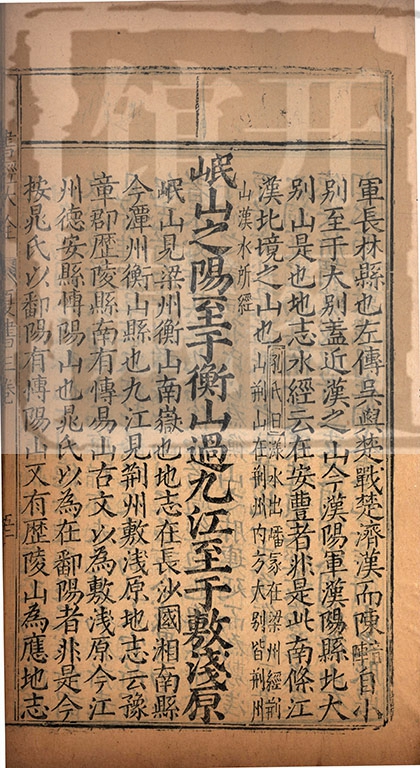 軍長林縣也左傳吳與楚戰楚濟漢而陳音陣自小
別至于大別蓋近漢之山今漢陽軍漢陽縣北大
別山是也地志水經云在安豊者非是此南條江
漢北境之山也孔氏曰漾水出嶓冢在梁州經荆
山荆山在荆州内方大別皆荆州
山漢水所經
岷山之陽至于衡山過九江至于敷淺原
岷山見梁州衡山南嶽也地志在長沙國湘南縣
今潭州衡山縣也九江見荆州敷淺原地志云豫
章郡歷陵縣南有傅昜山古文以為敷淺原今江
州德安縣傅陽山也晁氏以為在鄱陽者非是今
按晁氏以鄱陽有傅陽山又有歷陵山為應地志